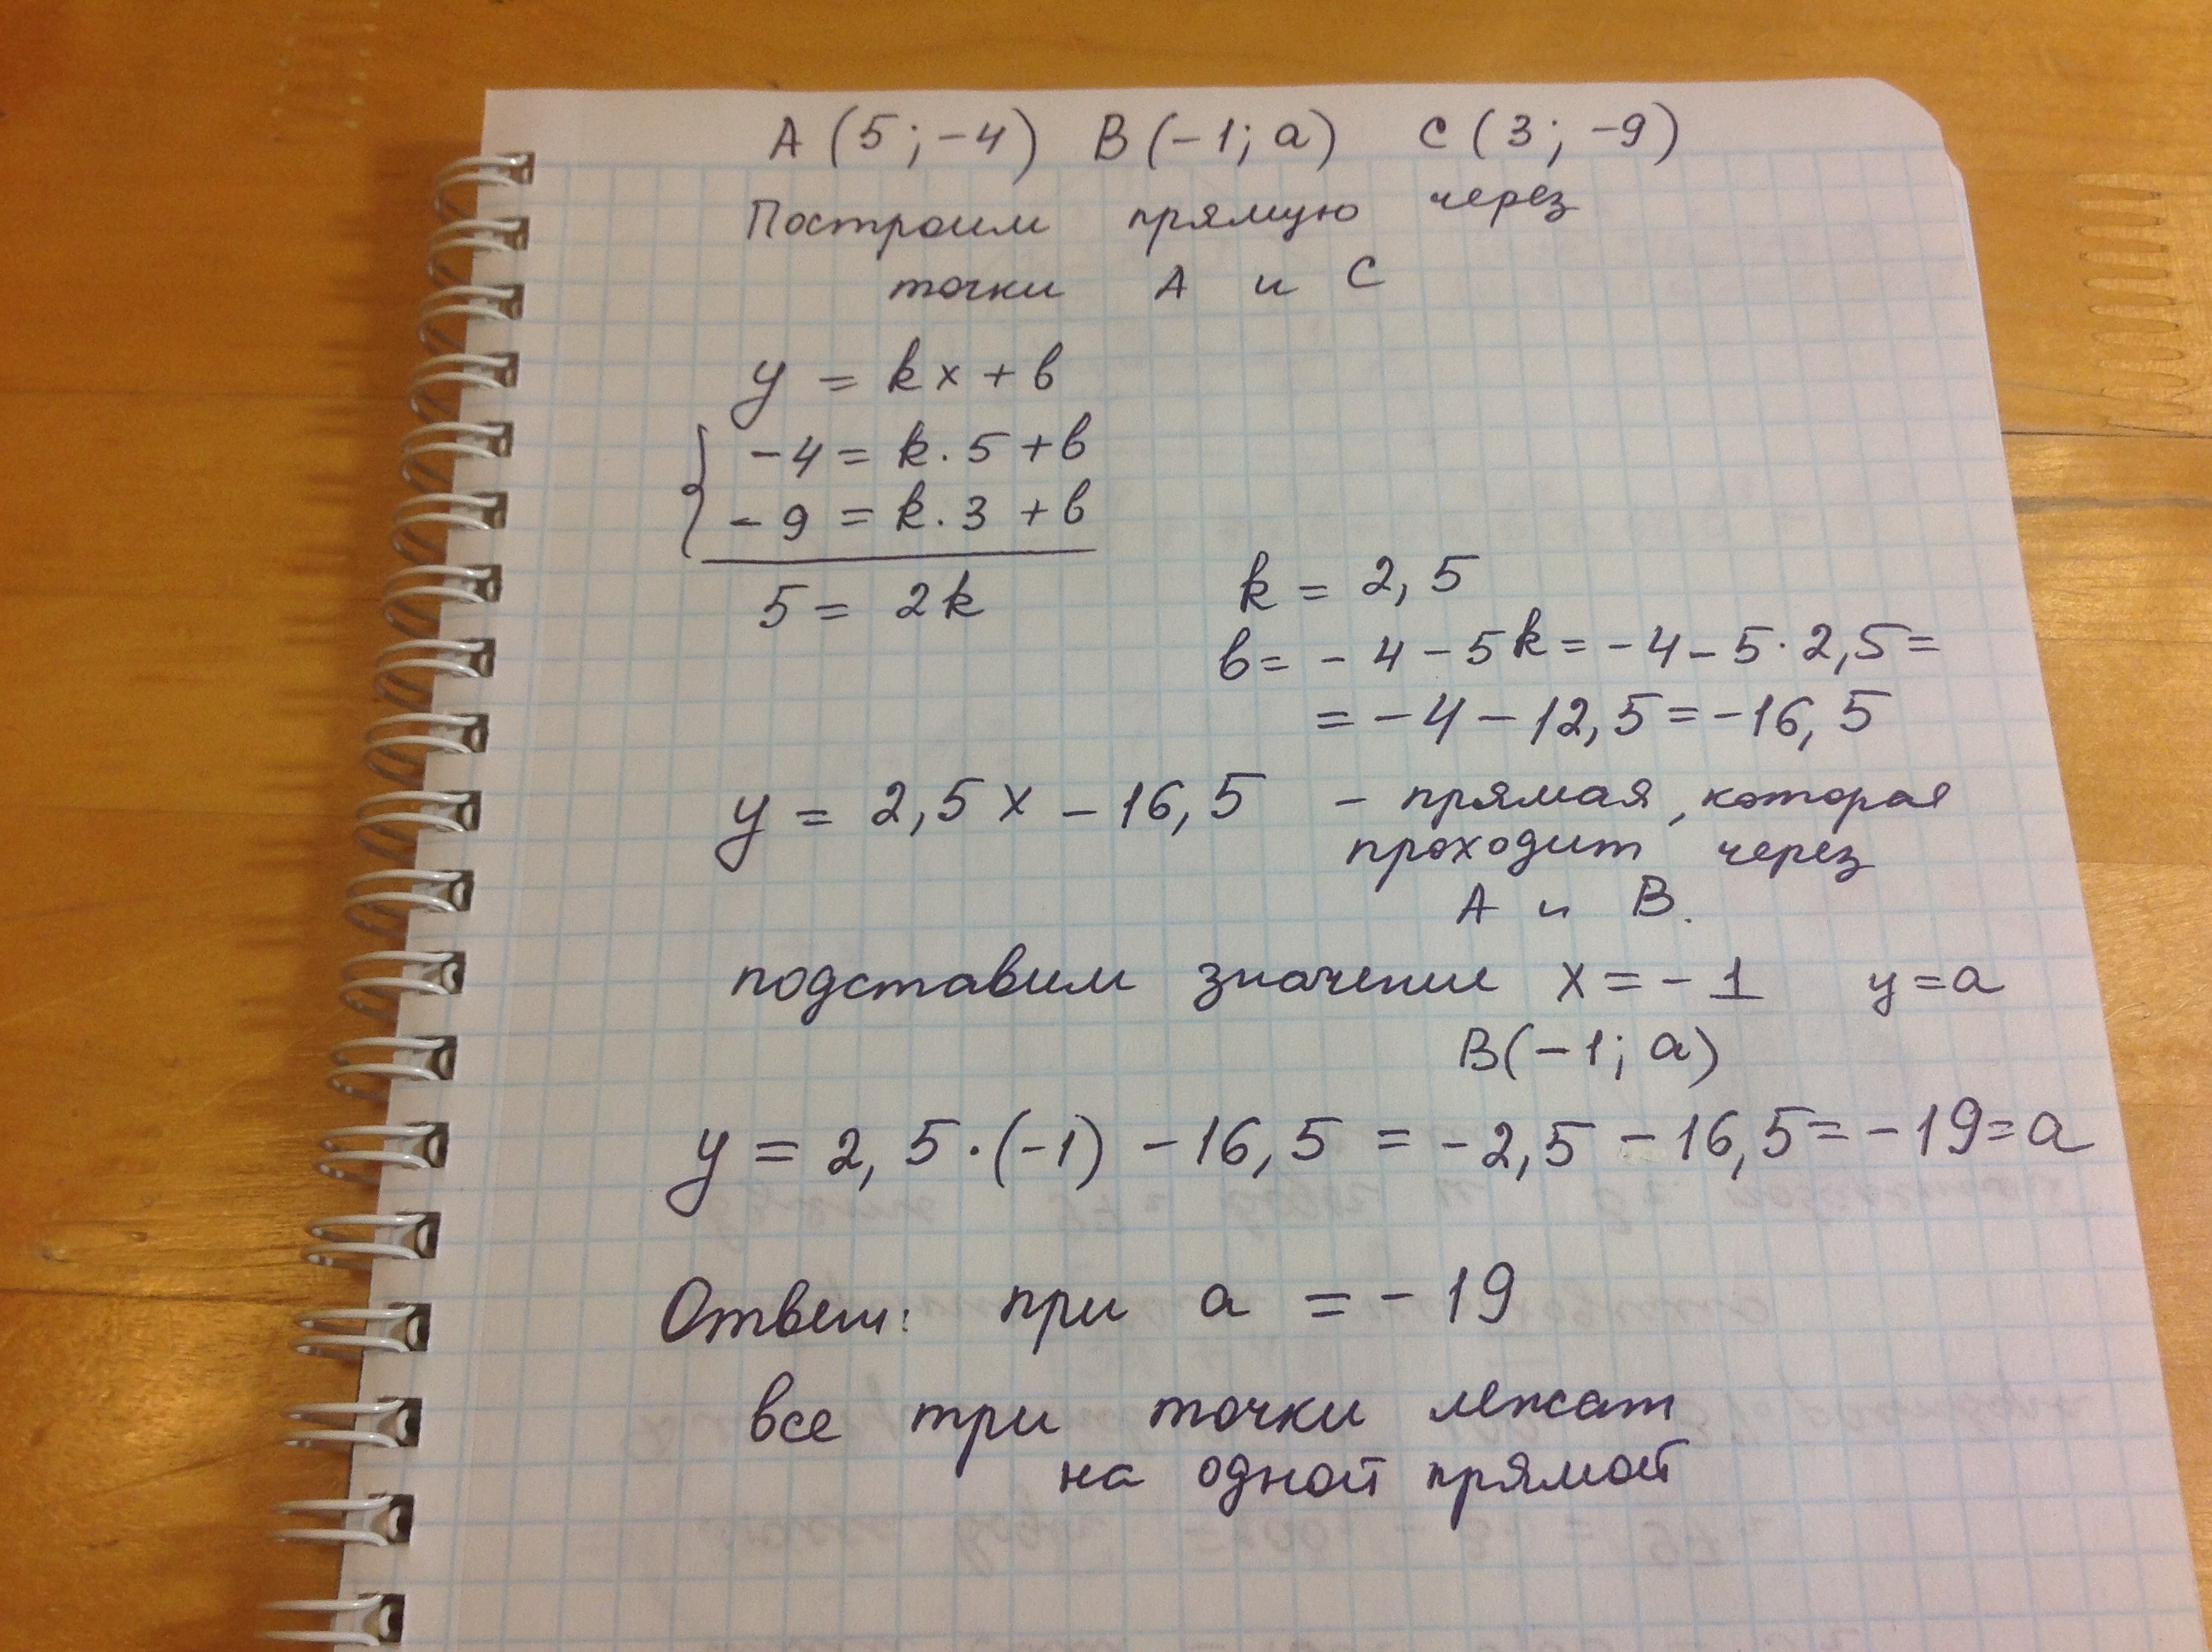 A (5 ; -4) B (-1; a) C (3 ; -9)
Построим прямую через
точки A и C
y = kx + b
-4 = k · 5 + b
-9 = k · 3 + b
5 = 2k
k = 2,5
b = -4 - 5k = -4 - 5 · 2,5 =
= -4 - 12,5 = -16,5
y = 2,5 x - 16,5 - прямая, которая
проходит через
A и B.
подставим значение x = -1 y = a
B(-1; a)
y = 2,5 · (-1) - 16,5 = -2,5 - 16,5 = -19 = a
Ответ: при a = -19
все три точки лежат
на одной прямой